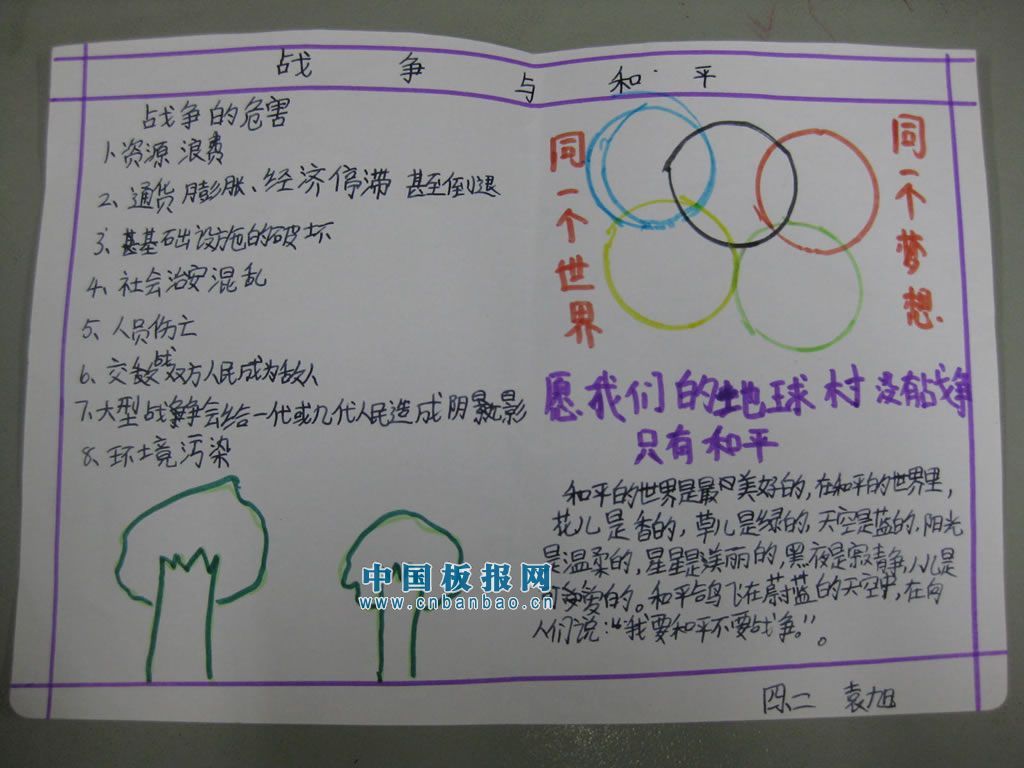 战争与和平
战争的危害
1、资源浪费
2、通货膨胀、经济停滞甚至倒退
3、基础设施的破坏
4、社会治安混乱
5、人员伤亡
6、交战双方人民成为敌人
7、大型战争会给一代或几代人民造成阴影
8、环境污染
同一个世界
同一个梦想.
愿我们的地球村没有战争
只有和平
和平的世界是最美好的,在和平的世界里,
花儿是香的,草儿是绿的,天空是蓝的,阳光
是温柔的,星星是美丽的,黑夜是寂静,儿是
可爱的。和平鸽飞在蔚蓝的天空中,在向
人们说:“我要和平不要战争。”。
中国板报网
www.cnbanbao.cn
四二 袁旭